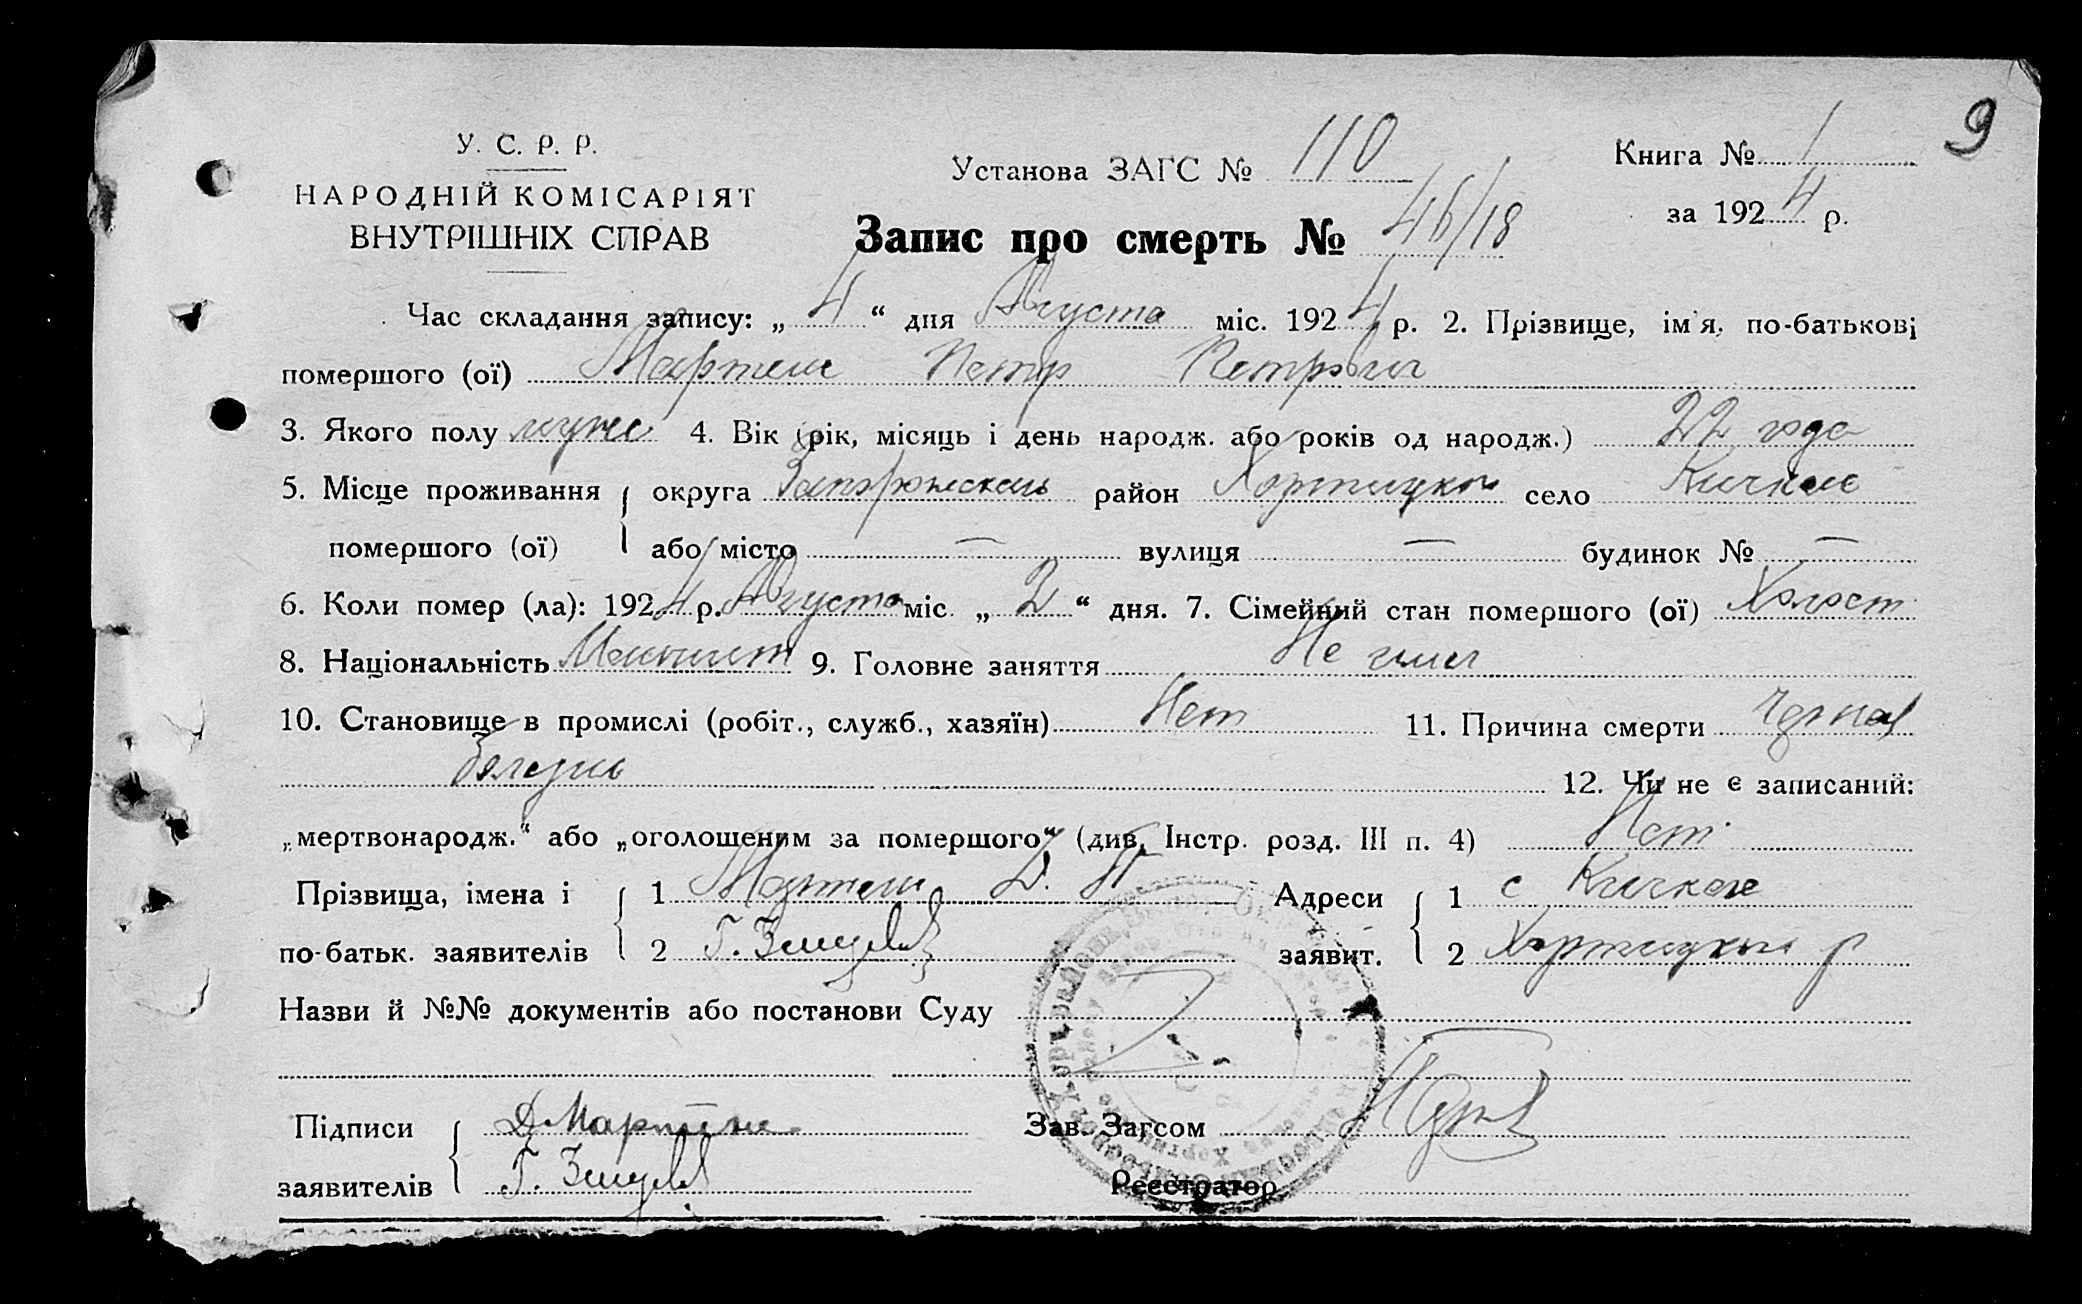 9
У. С. Р. Р.
НАРОДНІЙ КОМІСАРІЯТ
ВНУТРІШНІХ СПРАВ
Установа ЗАГС № 110
Книга № 1
за 1924 р.
Запис про смерть № 46/18
Час складання запису: „4“ дня Августа міс. 1924 р. 2. Прізвище, ім'я, по-батькові
помершого (ої) Мартенс Петр Петрович
3. Якого полу муже 4. Вік (рік, місяць і день народж. або років од народж.) 22 года
5. Місце проживання округа Запорожская район Хортицкий село Кичкас
помершого (ої) або місто — вулиця — будинок № —
6. Коли помер (ла): 1924 р. Августа міс. „2“ дня. 7. Сімейний стан помершого (ої) Холост
8. Національність 9. Головне заняття Не имел
10. Становище в промислі (робіт., служб., хазяїн) Нет 11. Причина смерти
болезнь 12. Чи не є записаний:
„мертвонародж.“ або „оголошеним за помершого“ (див. Інстр. розд. III п. 4) Нет
Прізвища, імена і 1 Мартенс Д. П Адреси 1 с Кичкас
по-батьк. заявителів 2 Г. заявит. 2 Хортицкий р
Назви й №№ документів або постанови Суду
Підписи Д Мартенс Зав. Загсом
заявителів Г. Реєстратор